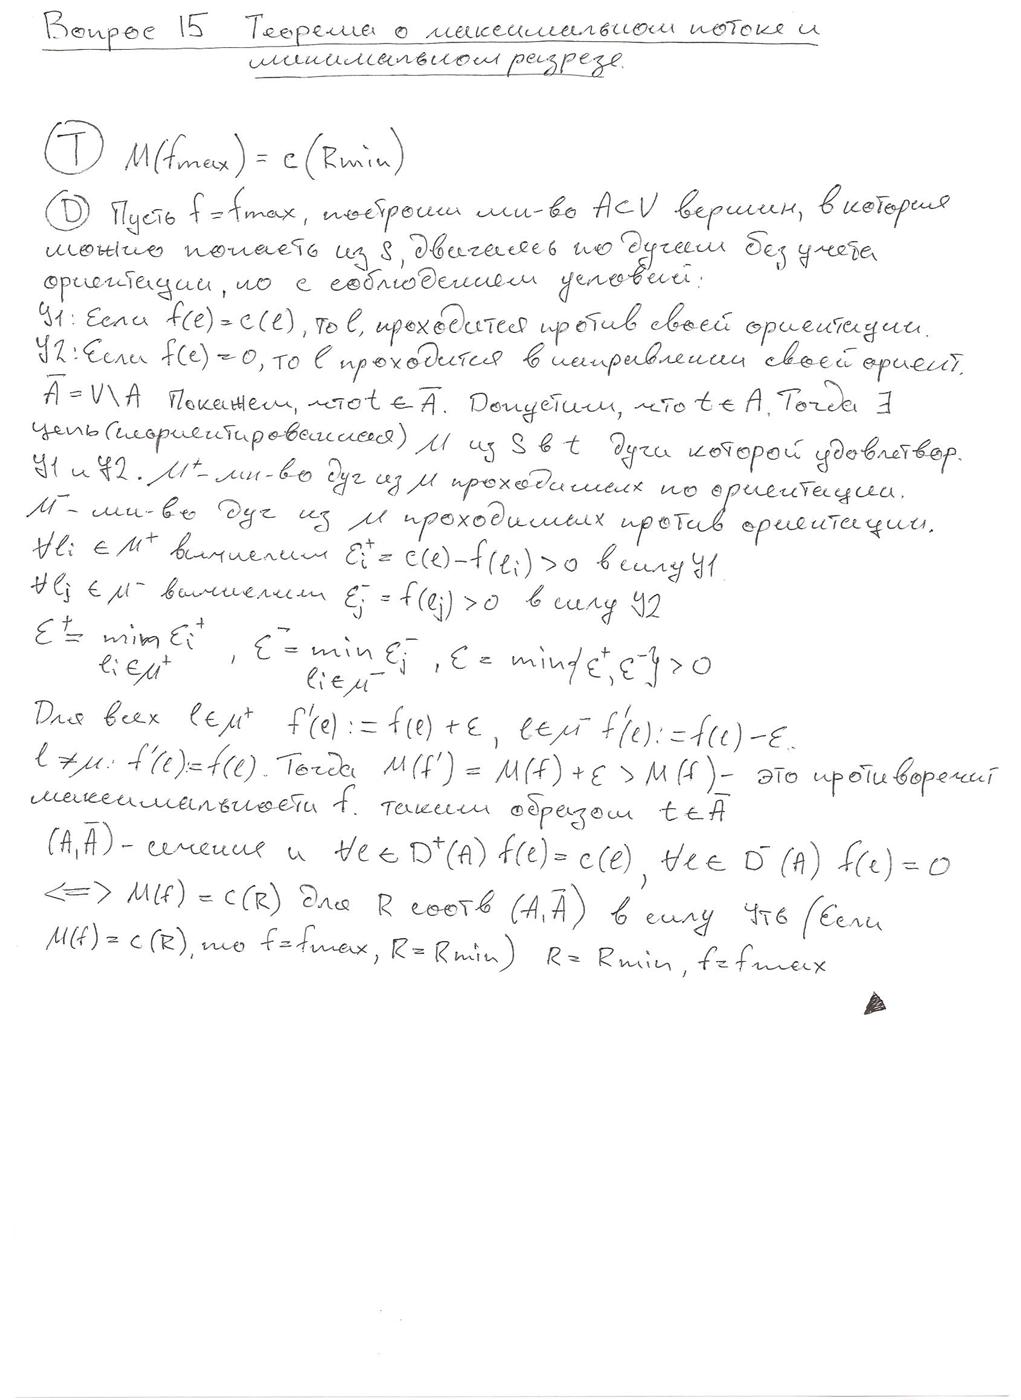 Вопрос 15 Теорема о максимальном потоке и
минимальном разрезе.
Ⓣ M(fmax) = c(Rmin)
Ⓓ Пусть f = fmax, построим мн-во A⊂V вершин, в которые
можно попасть из S, двигаясь по дугам без учета
ориентации, но с соблюдением условий:
У1: Если f(e) = c(e), то e, проходится против своей ориентации.
У2: Если f(e) = 0, то e проходится в направлении своей ориент.
Ā = V\A Покажем, что t ∈ Ā. Допустим, что t ∈ A. Тогда ∃
цепь (неориентированная) μ из S в t дуги которой удовлетвор.
У1 и У2. μ⁺ - мн-во дуг из μ проходимых по ориентации.
μ⁻ - мн-во дуг из μ проходимых против ориентации.
∀ei ∈ μ⁺ вычислим εi⁺ = c(e) - f(ei) > 0 в силу У1
∀ej ∈ μ⁻ вычислим εj⁻ = f(ej) > 0 в силу У2
ε⁺ = min εi⁺, ε⁻ = min εj⁻, ε = min{ε⁺, ε⁻} > 0
ei∈μ⁺ ei∈μ⁻
Для всех e∈μ⁺ f'(e) := f(e) + ε, e∈μ⁻ f'(e) := f(e) - ε.
e ≠ μ: f'(e) := f(e). Тогда M(f') = M(f) + ε > M(f) - это противоречит
максимальности f. таким образом t ∈ Ā
(A, Ā) - сечение и ∀e ∈ D⁺(A) f(e) = c(e), ∀e ∈ D⁻(A) f(e) = 0
<=> M(f) = c(R) для R соотв (A, Ā) в силу Утв (Если
M(f) = c(R), то f = fmax, R = Rmin) R = Rmin, f = fmax